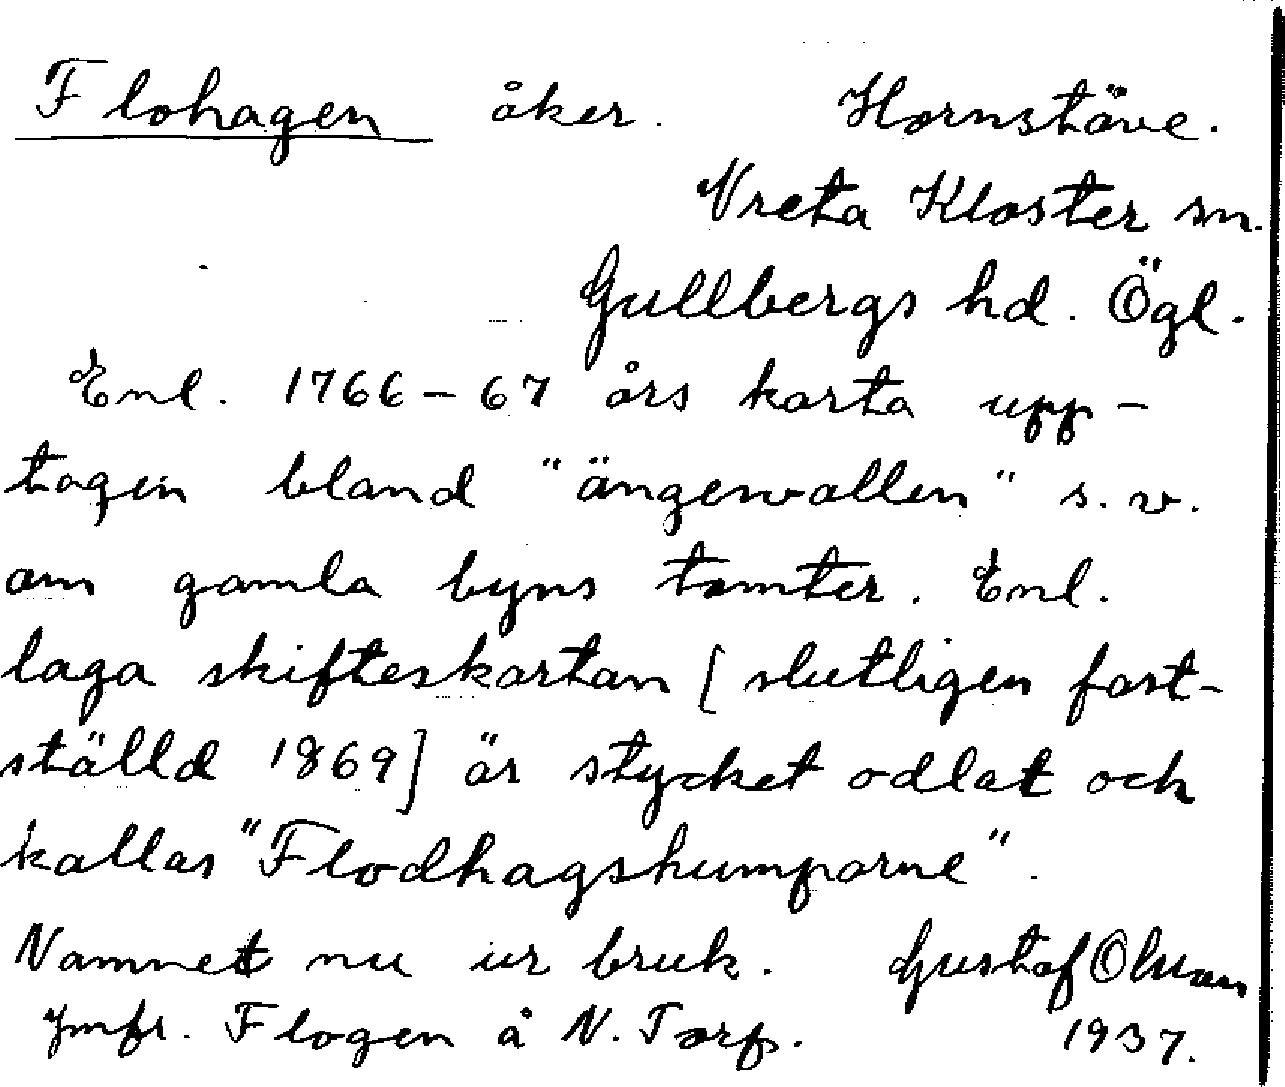 Flohagen åker. Hornstäve.
Vreta Kloster sn.
Gullbergs hd. Ögl.
Enl. 1766-67 års karta upp-
tagen bland "ängervallen" s.v.
om gamla byns tomter. Enl.
laga skifteskartan [slutligen fast-
ställd 1869] är stycket odlat och
kallas "Flodhagshumparne".
Namnet nu ur bruk. Gustaf Olsson
Jmfr. Flogen å N. Torp. 1937.